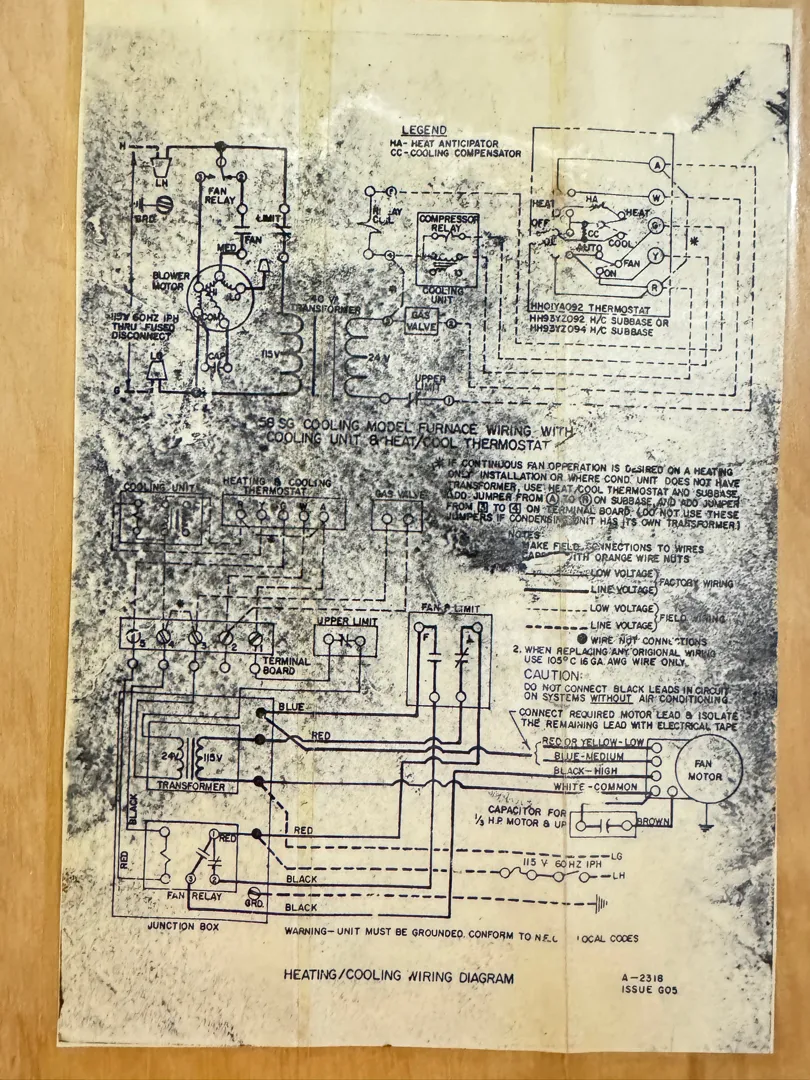 LEGEND
HA- HEAT ANTICIPATOR
CC-COOLING COMPENSATOR
H
LH
GRD.
FAN
RELAY
LIMIT
FAN
MED
LO
COM
CAP
BLOWER
MOTOR
115V 60HZ 1PH
THRU FUSED
DISCONNECT
LG
G
TRANSFORMER
115V
24V
COMPRESSOR
RELAY
COOLING
UNIT
GAS
VALVE
UPPER
LIMIT
HEAT
OFF
HA
HEAT
CC
COOL
AUTO
FAN
ON
A
W
G
Y
R
*
HH01YA092 THERMOSTAT
HH93YZ092 H/C SUBBASE OR
HH93YZ094 H/C SUBBASE
58 SG COOLING MODEL FURNACE WIRING WITH
COOLING UNIT & HEAT/COOL THERMOSTAT
* IF CONTINUOUS FAN OPPERATION IS DESIRED ON A HEATING
ONLY INSTALLATION OR WHERE COND. UNIT DOES NOT HAVE
TRANSFORMER, USE HEAT/COOL THERMOSTAT AND SUBBASE,
ADD JUMPER FROM (A) TO (R) ON SUBBASE, AND ADD JUMPER
FROM TO 4 ON TERMINAL BOARD. (DO NOT USE THESE
JUMPERS IF CONDENSING UNIT HAS ITS OWN TRANSFORMER)
COOLING UNIT
HEATING & COOLING
THERMOSTAT
R Y G W A
GAS VALVE
NOTES
MAKE FIELD CONNECTIONS TO WIRES
WITH ORANGE WIRE NUTS
LOW VOLTAGE
LINE VOLTAGE
FACTORY WIRING
LOW VOLTAGE
LINE VOLTAGE
FIELD WIRING
WIRE NUT CONNECTIONS
2. WHEN REPLACING ANY ORIGIONAL WIRING
USE 105°C 16 GA. AWG WIRE ONLY.
CAUTION:
DO NOT CONNECT BLACK LEADS IN CIRCUIT
ON SYSTEMS WITHOUT AIR CONDITIONING.
CONNECT REQUIRED MOTOR LEAD & ISOLATE
THE REMAINING LEAD WITH ELECTRICAL TAPE
5 4 3 2 1
*
TERMINAL
BOARD
UPPER LIMIT
FAN & LIMIT
F
L
BLUE
RED
24V
115V
TRANSFORMER
RED OR YELLOW-LOW
BLUE-MEDIUM
BLACK-HIGH
WHITE-COMMON
FAN
MOTOR
CAPACITOR FOR
1/3 H.P. MOTOR & UP
BROWN
BLACK
RED
RED
RED
3 2
FAN RELAY
BLACK
GRD.
BLACK
JUNCTION BOX
LG
115 V 60 HZ 1PH
LH
WARNING-UNIT MUST BE GROUNDED. CONFORM TO N.E.C. LOCAL CODES
HEATING/COOLING WIRING DIAGRAM
A-2318
ISSUE G05